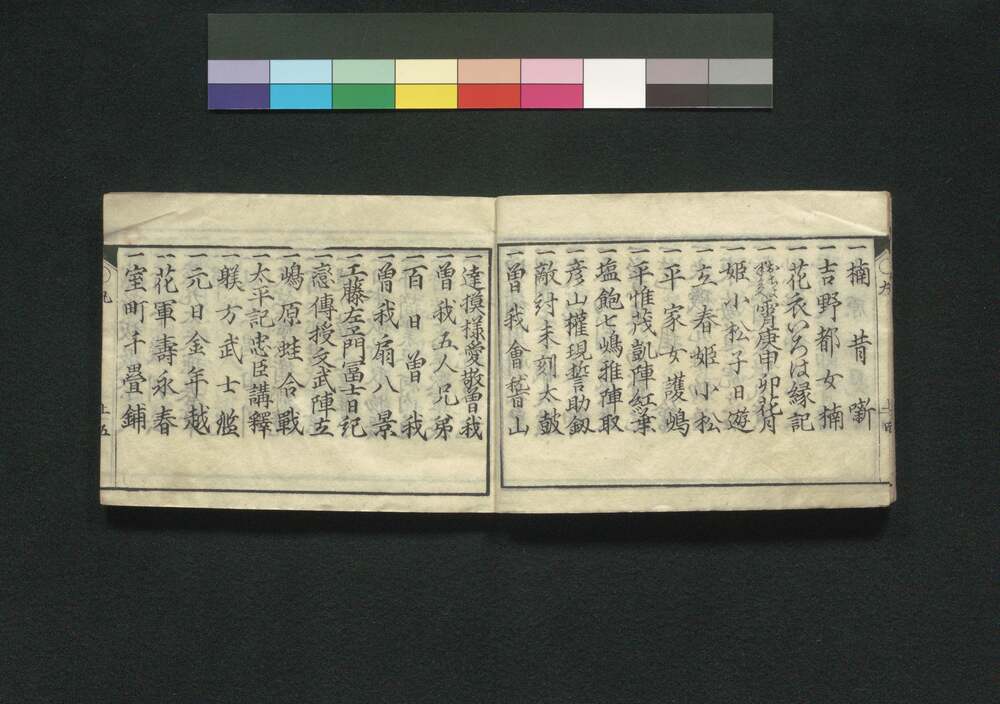 一楠昔噺
一吉野都女楠
一花衣いろは縁記
一庚申卯花月
一姫小松子日遊
一立春姫小松
一平家女護嶋
一平惟茂凱陣紅葉
一塩飽七嶋推陣取
一彦山權現誓助釼
一敵討未刻太鼓
一曽我會稽山
一達摸様愛敬曽我
一曽我五人兄弟
一百日曽我
一曽我扇八景
一工藤左エ門冨士日记
一恋傳授文武陣立
一嶋原蛙合戰
一太平記忠臣講釋
一躾方武士鑑
一元日金年越
一花軍壽永春
一室町千疊鋪